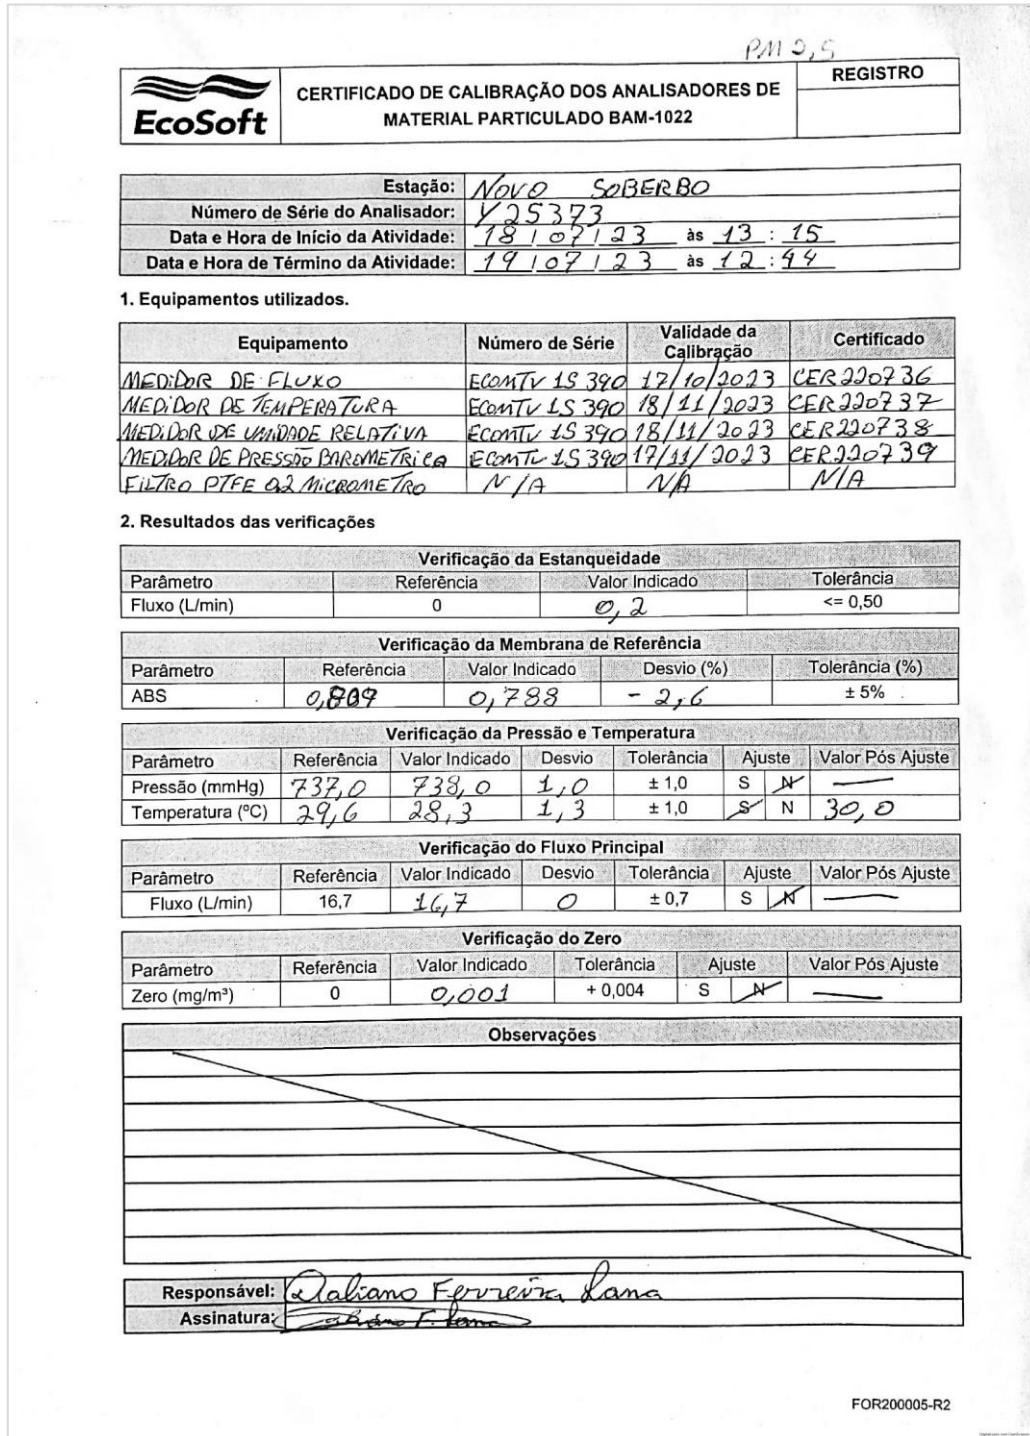 PM 2,5
EcoSoft
CERTIFICADO DE CALIBRAÇÃO DOS ANALISADORES DE
MATERIAL PARTICULADO BAM-1022
REGISTRO
Estação: NOVO SOBERBO
Número de Série do Analisador: Y25373
Data e Hora de Início da Atividade: 18/07/23 às 13:15
Data e Hora de Término da Atividade: 19/07/23 às 12:44
1. Equipamentos utilizados.
Equipamento Número de Série Validade da Calibração Certificado
MEDIDOR DE FLUXO ECOMTV 1S 390 17/10/2023 CER220736
MEDIDOR DE TEMPERATURA ECOMTV 1S 390 18/11/2023 CER220737
MEDIDOR DE UMIDADE RELATIVA ECOMTV 1S 390 18/11/2023 CER220738
MEDIDOR DE PRESSÃO BAROMETRICA ECOMTV 1S 390 17/11/2023 CER220739
FILTRO PTFE 0,2 MICROMETRO N/A N/A N/A
2. Resultados das verificações
Verificação da Estanqueidade
Parâmetro Referência Valor Indicado Tolerância
Fluxo (L/min) 0 0,2 <= 0,50
Verificação da Membrana de Referência
Parâmetro Referência Valor Indicado Desvio (%) Tolerância (%)
ABS 0,809 0,788 - 2,6 ± 5%
Verificação da Pressão e Temperatura
Parâmetro Referência Valor Indicado Desvio Tolerância Ajuste Valor Pós Ajuste
Pressão (mmHg) 737,0 738,0 1,0 ± 1,0 S N
Temperatura (ºC) 29,6 28,3 1,3 ± 1,0 S N 30,0
Verificação do Fluxo Principal
Parâmetro Referência Valor Indicado Desvio Tolerância Ajuste Valor Pós Ajuste
Fluxo (L/min) 16,7 16,7 0 ± 0,7 S N
Verificação do Zero
Parâmetro Referência Valor Indicado Tolerância Ajuste Valor Pós Ajuste
Zero (mg/m³) 0 0,001 + 0,004 S N
Observações
Responsável: Daliano Ferreira Lana
Assinatura:
FOR200005-R2